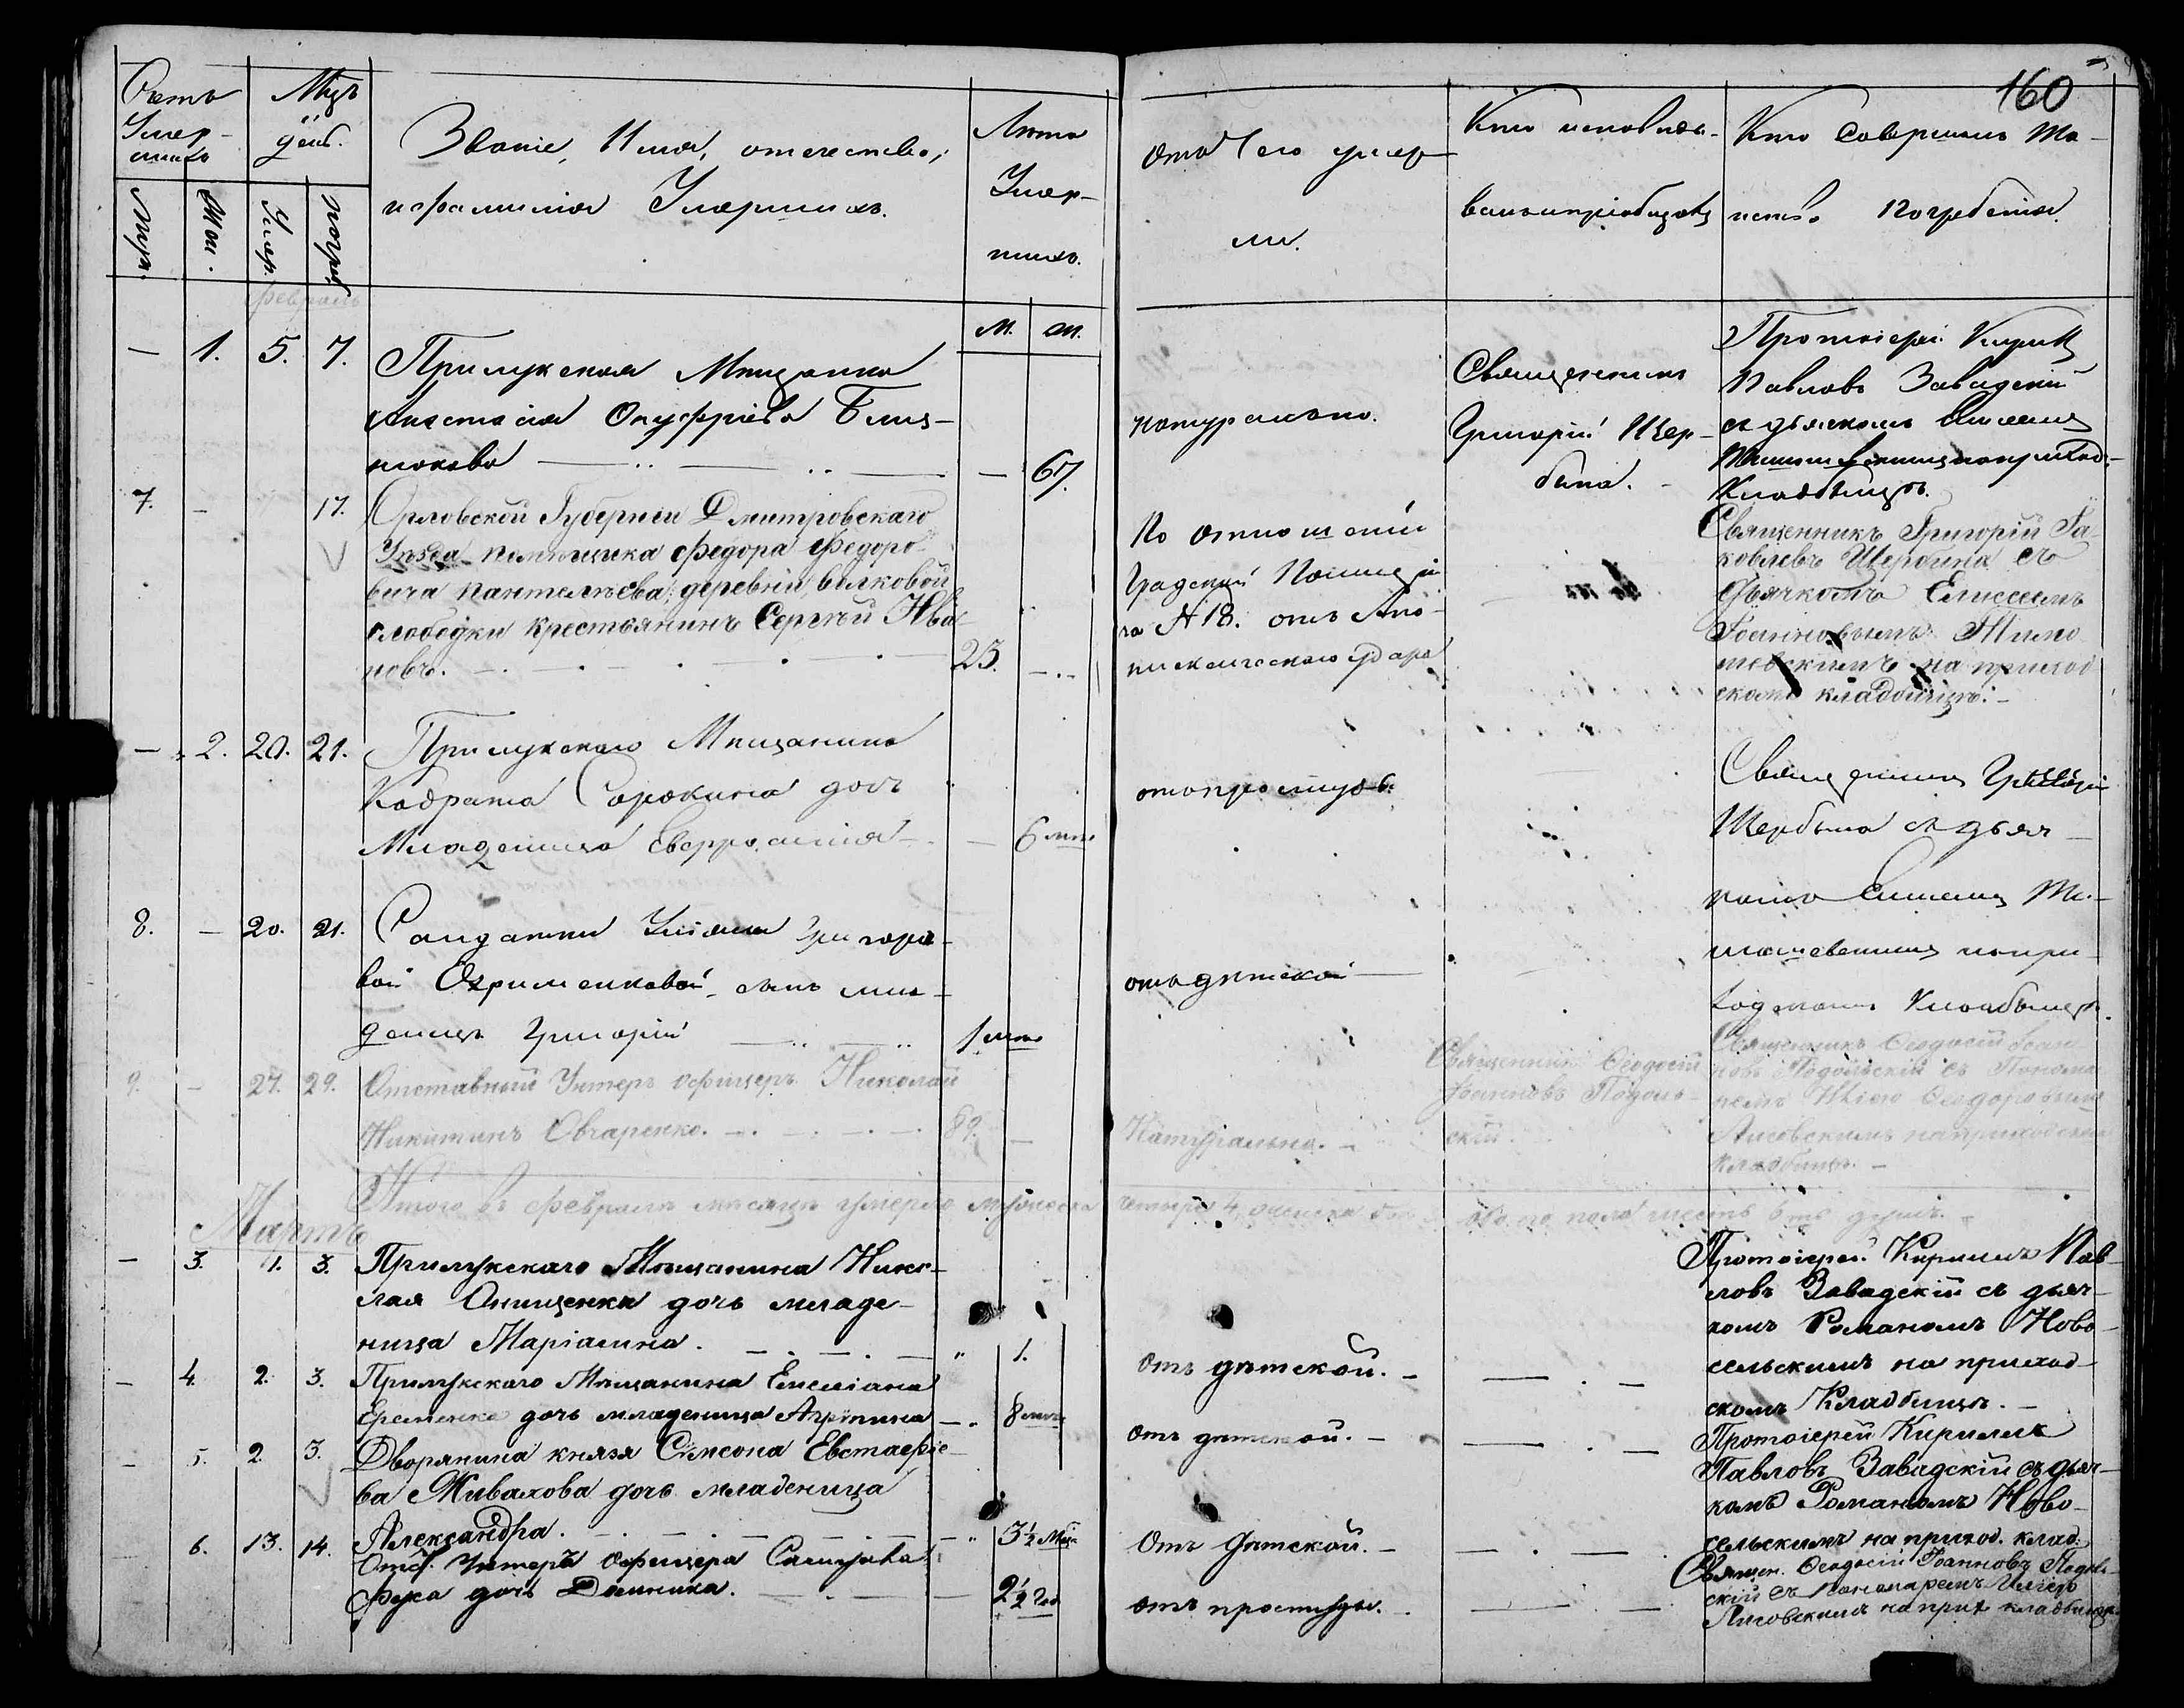 160
Счетъ Умер-шихъ
Мцъ день.
Званіе, Имя, отечество,
и фамилія Умершихъ.
Лѣта
Умер-
шихъ.
Муж.
Жен.
Умер.
погреб.
М. Ж.
Отъ чего умер-
ли.
Кто исповѣды-
валъ и пріобщалъ
Кто Совершалъ та-
инство Погребенія.
Февраль
— 1. 5. 7.
Прилукская Мѣщанка
Анастасія Онуфріева
— 67.
натурально.
Священникъ
Григорій Щер-
бина.
Протоіерей Кирилъ
Павловъ Завадскій
съ дьячкомъ
Кладбищѣ.
7. — 17.
Орловской Губерніи Дмитровскаго
Уѣзда помѣщика Федора Федоро-
вича Пантелѣева, деревни Волковой
слободки крестьянинъ Сергѣй Ива-
новъ. 25. —
По отношенію
Градской Полиціи
за № 18. отъ Апо-
плексическаго удара
Священникъ Григорій Іа-
ковлевъ Щербина съ
Дьячкомъ Елисеемъ
Іоанновымъ Тимо-
шевскимъ на приход-
скомъ кладбищѣ.
— 2. 20. 21.
Прилукскаго Мѣщанина
Кодрата Сорокина дочь
Младеница Евфросинія
— 6 лѣтъ
отъ простуды.
Священникъ Григорій
Щербина съ дьяч-
комъ Елисеемъ Ти-
мошевскимъ на при-
ходскомъ Кладбищѣ.
8. — 20. 21.
Солдатки Уліяны Григорье-
вой Охрименковой сынъ мла-
денецъ Григорій
1 лѣта
отъ дѣтской
9. — 27. 29.
Отставный Унтеръ офицеръ Николай
Никитинъ Овчаренко. 89. —
Натурально.
Священникъ Ѳеодосій
Іоанновъ Подоль-
скій.
Священникъ Ѳеодосій Іоан-
новъ Подольскій съ Понома-
ремъ Иліею Ѳеодоровымъ
Лисовскимъ на приходскомъ
кладбищѣ.
Итого въ Февралѣ мѣсяцѣ умерло мужеска четыре 4, женска два 2, обоего пола шесть 6ть душъ.
Мартъ
— 3. 1. 3.
Прилукскаго Мѣщанина Нико-
лая Онищенка дочь младе-
ница Маріамна. „ 1.
Отъ дѣтской.
Протоіерей Кирилъ Пав-
ловъ Завадскій съ дьяч-
комъ Романомъ Ново-
сельскимъ на приход-
скомъ Кладбищѣ.
— 4. 2. 3.
Прилукскаго Мѣщанина Емеліана
Еременка дочь младеница Агрипина — 8 лѣтъ
Отъ дѣтской.
Протоіерей Кирилъ
Павловъ Завадскій съ дьяч-
комъ Романомъ Ново-
сельскимъ на приход. клад:
— 5. 2. 3.
Дворянина князя Самсона Евстафіе-
ва Живахова дочь младеница
Александра. „ 3½ Мѣся
Отъ Дѣтской.
6. 13. 14.
Отст. Унтеръ Офицера
дочь Домника. — 2½ Год
отъ простуды.
Священ. Ѳеодосій Іоанновъ Подоль-
скій съ Пономаремъ Иліею
Лисовскимъ на прих. кладбищѣ